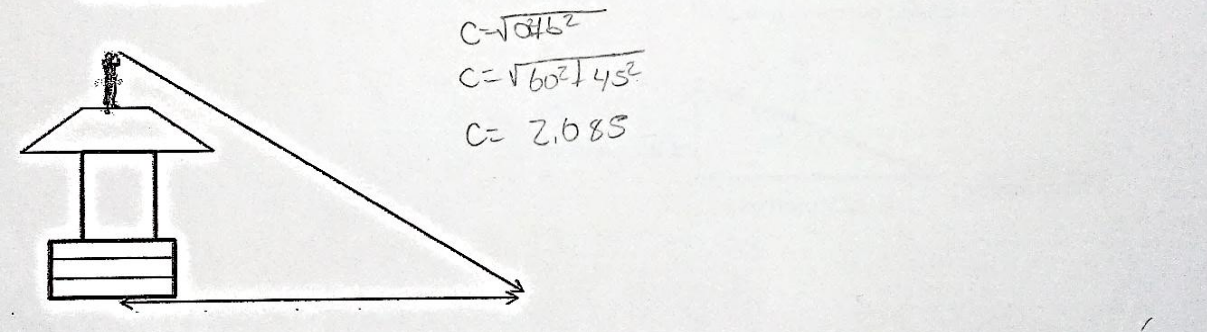 C=√a²+b²
C=√60²+45²
C= 2,085